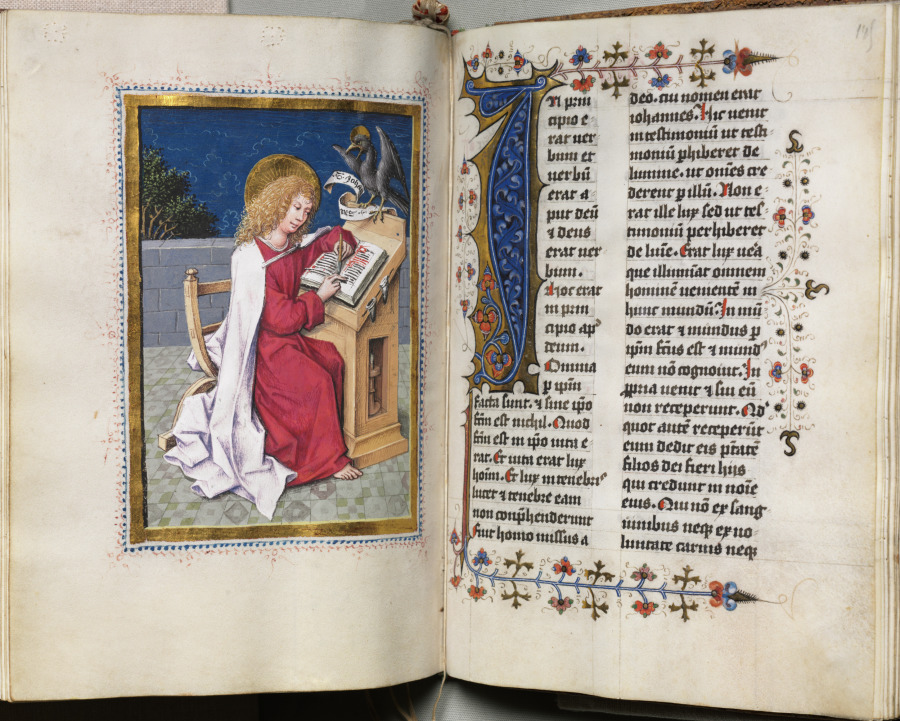 In prin
cipio e
rat uer
bum et
uerbū
erat a
put deū
⁊ deus
erat uer
bum.
Hoc erat
in prin
cipio apᵈ
deum.
Omnia
ꝑ ip̄m
facta sunt. ⁊ sine ip̄o
fc̄m est nichil. Quod
fc̄m est in ip̄o uita e
rat. Et uita erat lux
hoīm. Et lux in tenebrꝭ
lucet ⁊ tenebre eam
non comp̄henderunt
Fuit homo missus a
deo. cui nomen erat
iohannes. Hic uenit
in testimoniū ut testi
moniū phiberet de
lumine. ut om̄es cre
derent p illū. Non e
rat ille lux sed ut tes
timonium perhiberet
de lūīe. Erat lux ue͛a
que illuminat omnem
hominē uenientē in
hunc mundū. In mū
do erat ⁊ mundus p
ip̄m fc̄us est ⁊ mundꝰ
eum nō cognouit. In
ꝓpria uenit ⁊ sui eū
non receperunt. Qd̓
quot autē receperūt
eum dedit eis ptātē
filios dei fieri hijs
qui credunt in noīe
eius. Qui nō ex sang
uinibus neqꝫ ex uo
luntate carnis neqꝫ